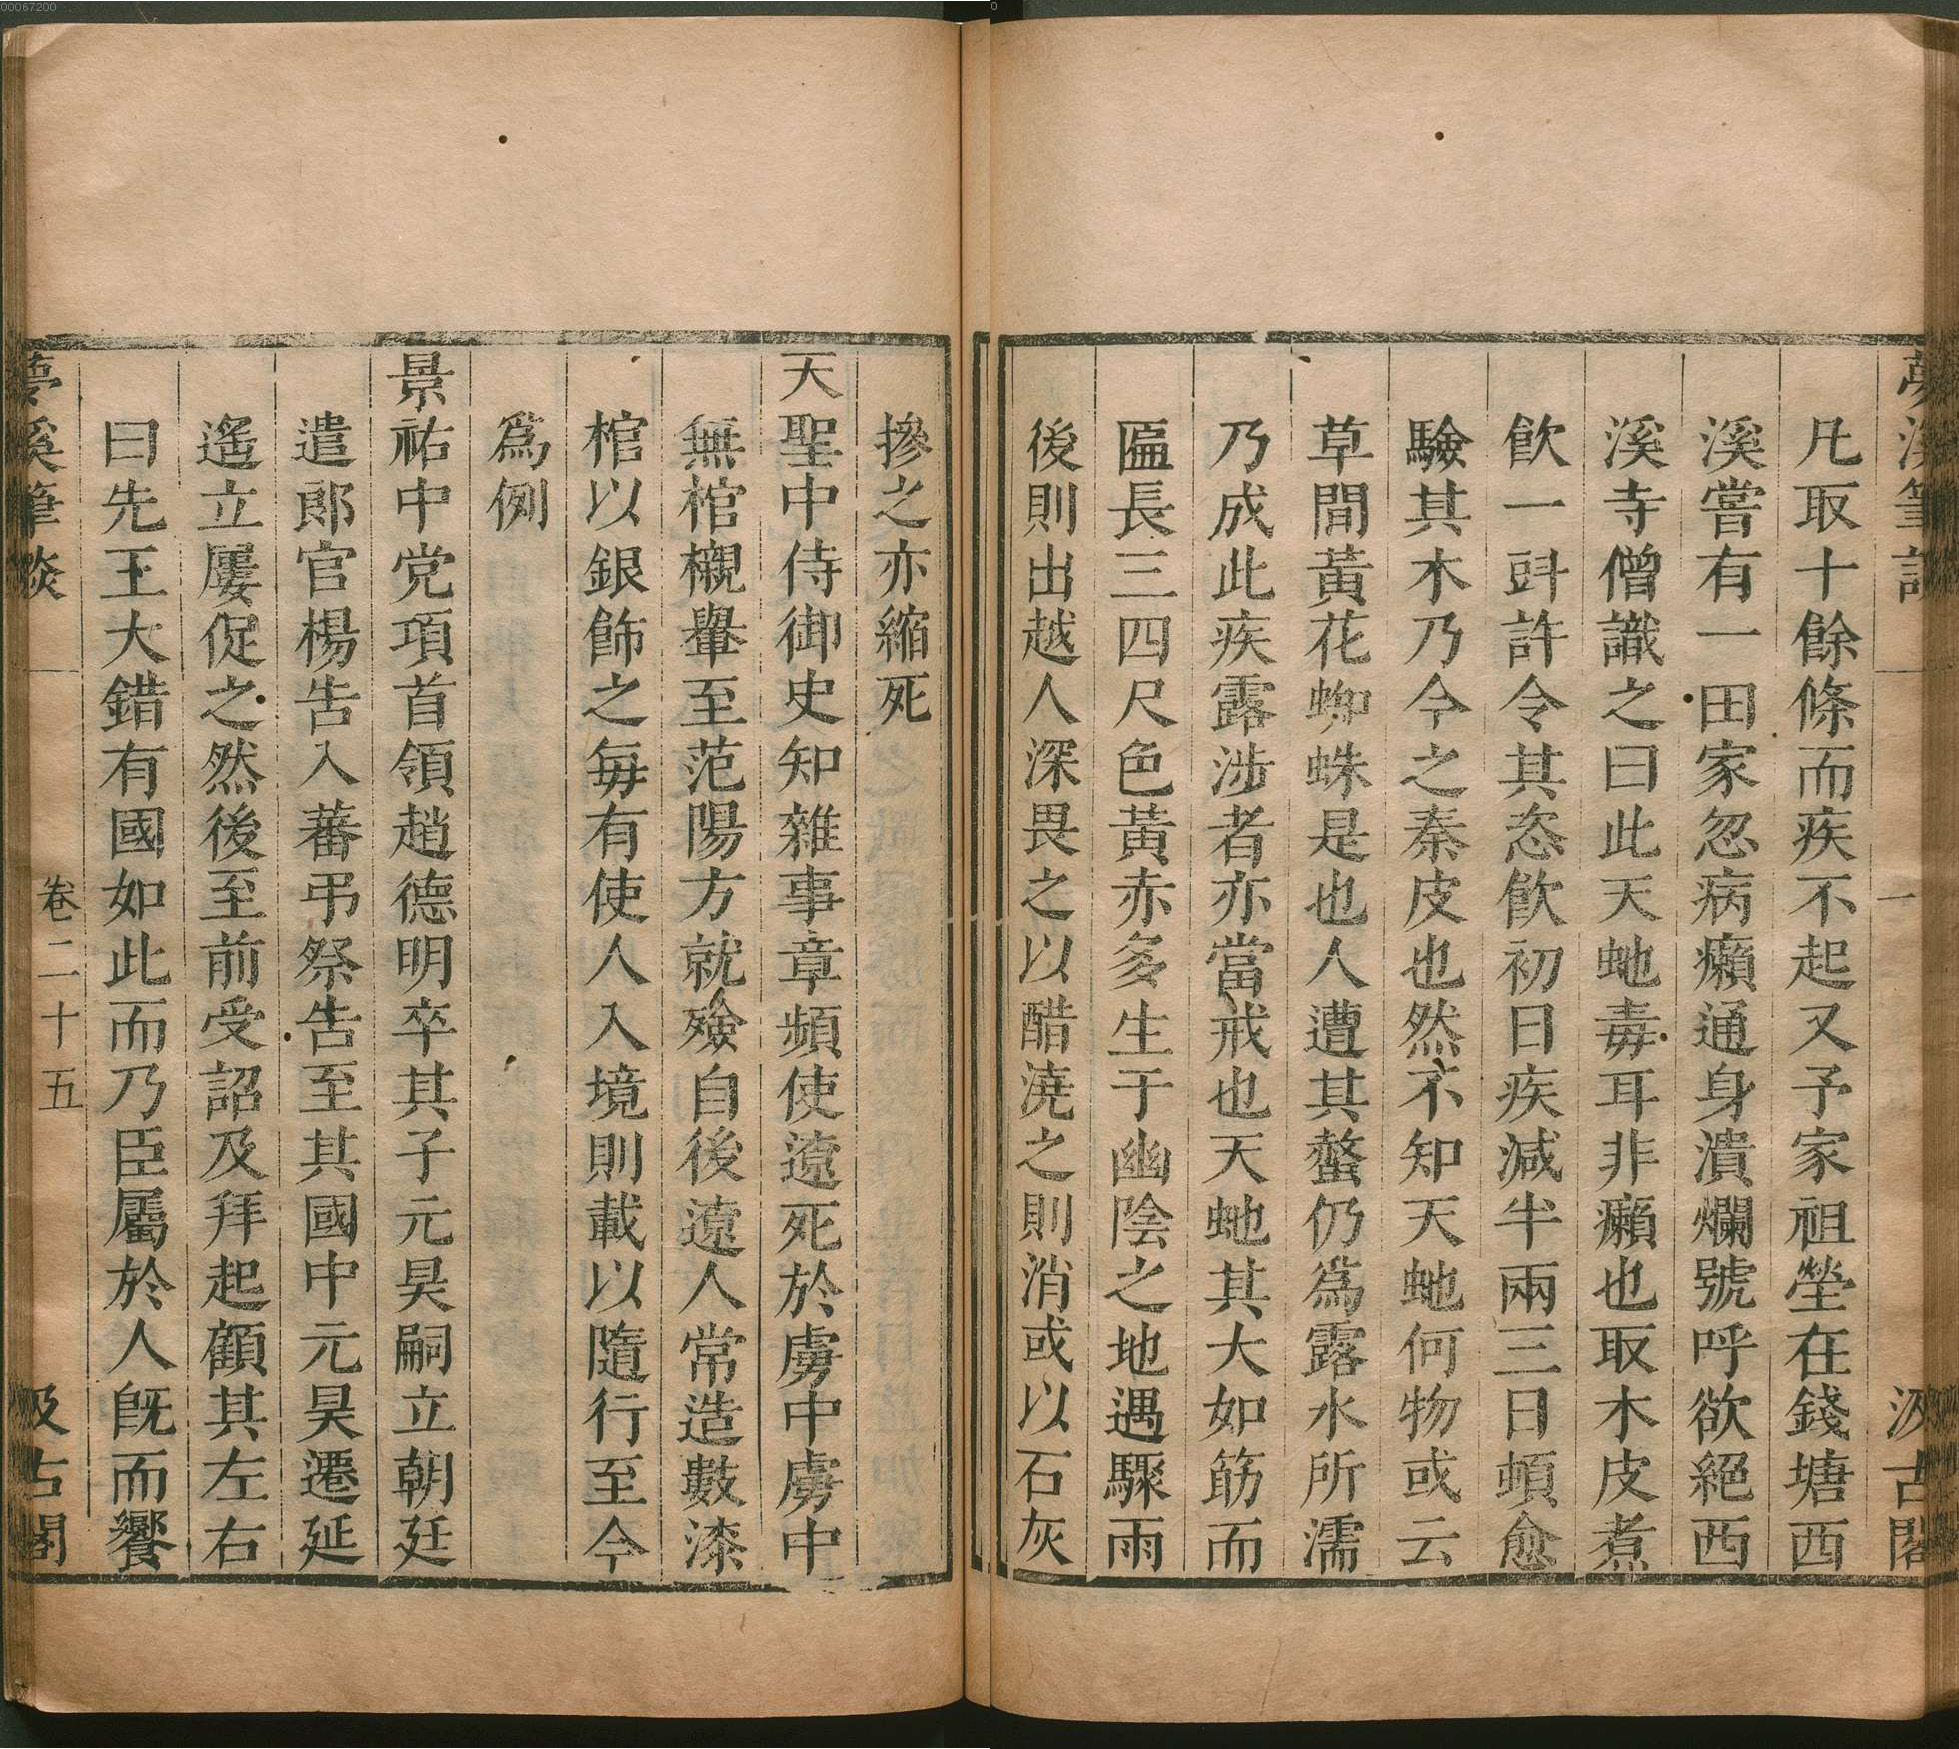 00067200
夢溪筆談
一
汲古閣
凡取十餘條而疾不起又予家祖塋在錢塘西
溪嘗有一田家忽病癩通身潰爛號呼欲絕西
溪寺僧識之曰此天虵毒耳非癩也取木皮煮
飲一㪷許令其恣飲初日疾減半兩三日頓愈
驗其木乃今之秦皮也然不知天虵何物或云
草間黃花蜘蛛是也人遭其螫仍爲露水所濡
乃成此疾露涉者亦當戒也天虵其大如筯而
匾長三四尺色黃赤多生于幽陰之地遇驟雨
後則出越人深畏之以醋澆之則消或以石灰
摻之亦縮死
天聖中侍御史知雜事章頻使遼死於虜中虜中
無棺櫬轝至范陽方就殮自後遼人常造數漆
棺以銀飾之每有使人入境則載以隨行至今
爲例
景祐中党項首領趙德明卒其子元昊嗣立朝廷
遣郎官楊告入蕃弔祭告至其國中元昊遷延
遙立屢促之然後至前受詔及拜起顧其左右
曰先王大錯有國如此而乃臣屬於人旣而饗
夢溪筆談
卷二十五
汲古閣